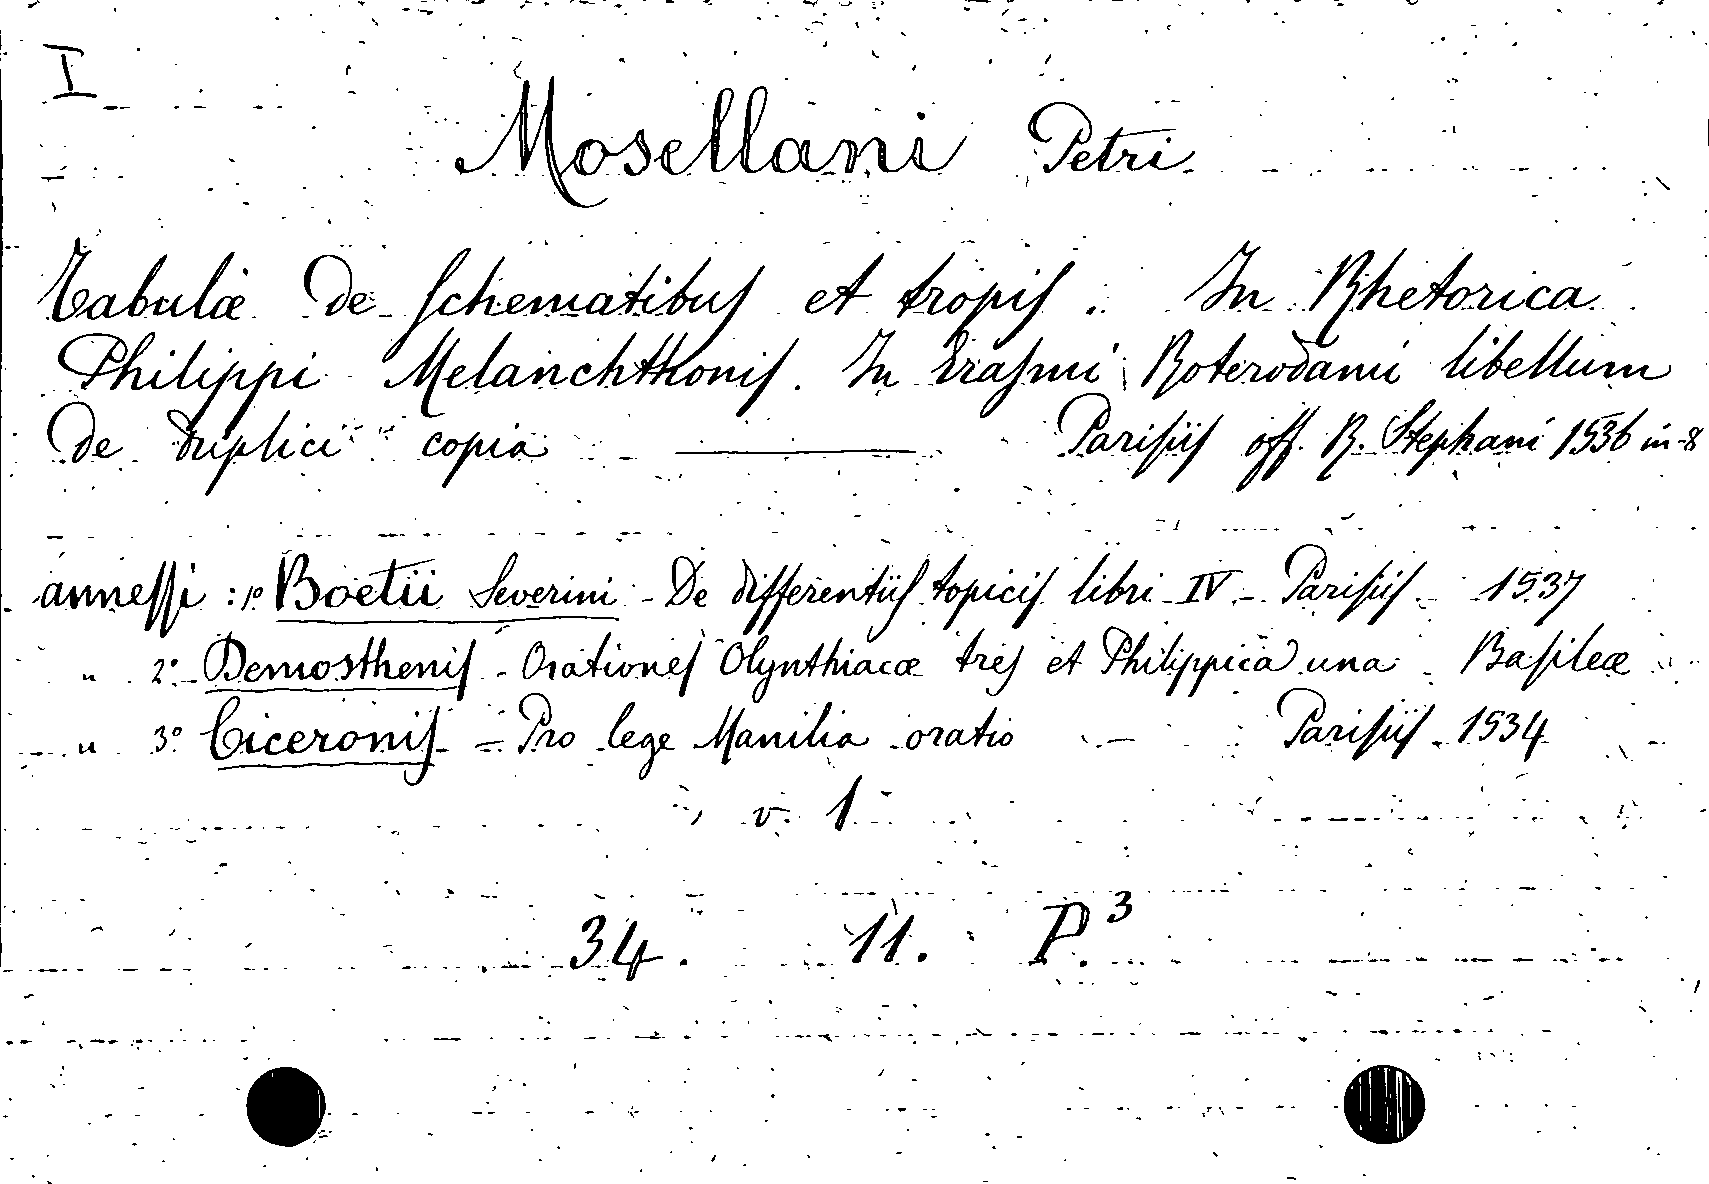 I
Mosellani Petri
Tabulæ de schematibus et tropis. In Rhetorica
Philippi Melanchthonis. In Erasmi Roterodami libellum
de duplici copia ——— Parisiis off. R. Stephani 1536 in-8
annessi: 1º Boetii Severini - De differentiis topicis libri IV - Parisiis - 1537
" 2º - Demosthenis - Orationes Olynthiacæ tres et Philippica una - Basileæ
" 3º Ciceronis - Pro lege Manilia oratio - Parisiis - 1534
v. 1
34. 11. P.³